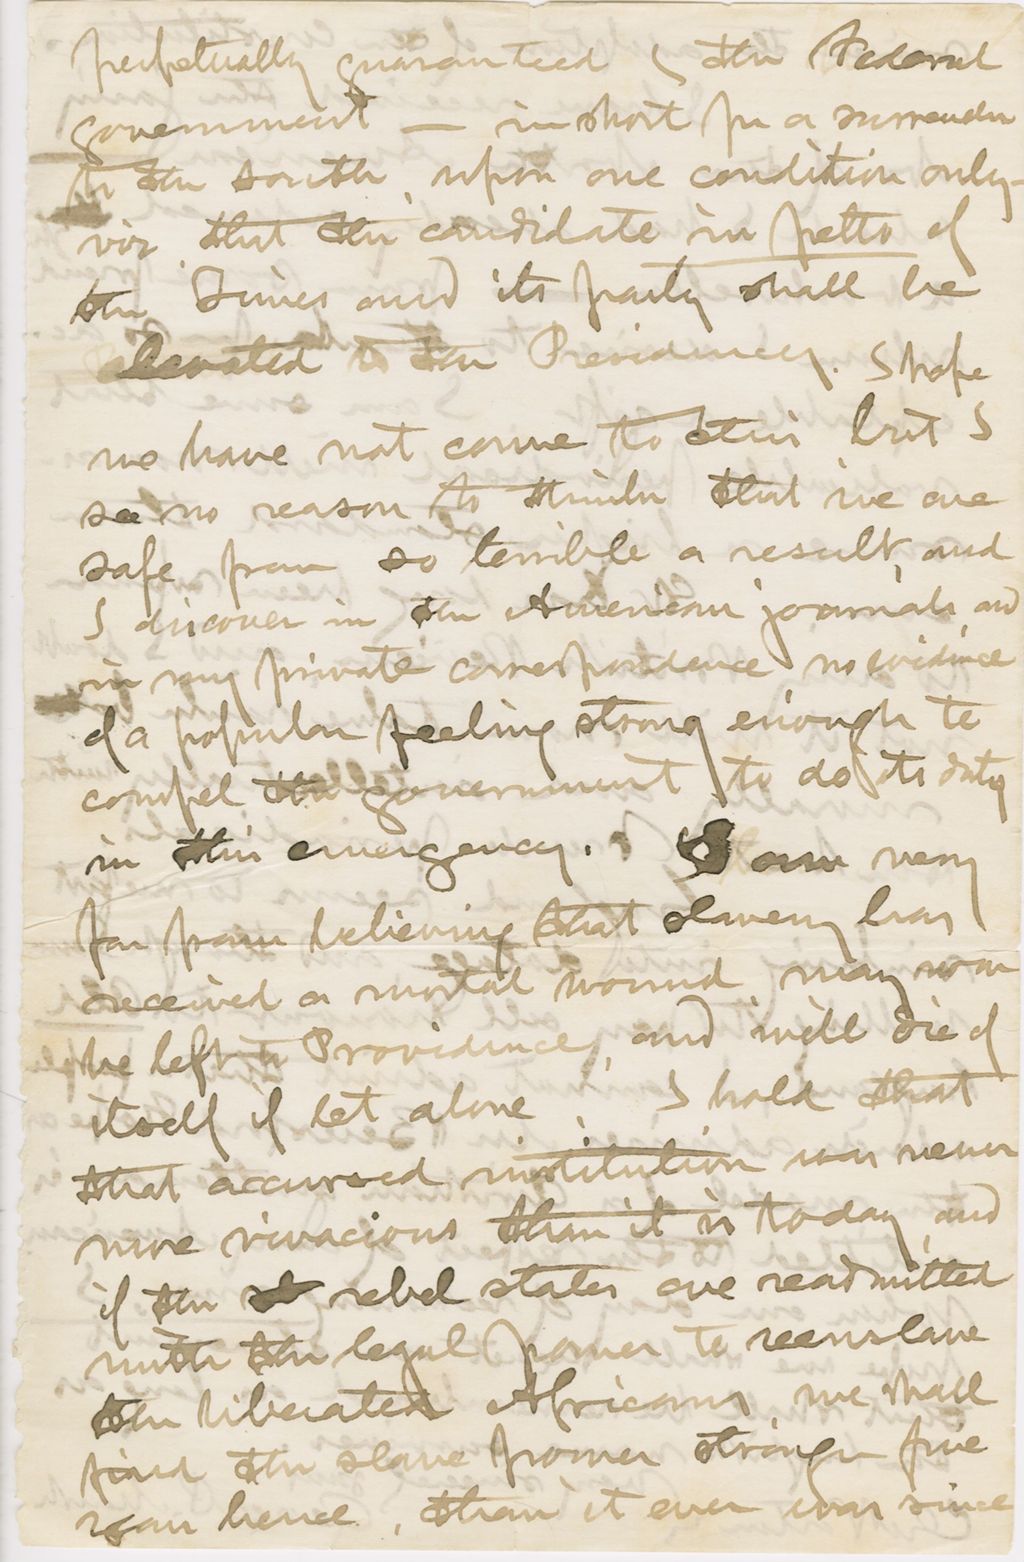 perpetually guaranteed by the Federal
government — in short for a surrender
to the south, upon one condition only—
viz that the candidate in petto of
the Times and its party shall be
elevated to the Presidency. I hope
we have not come to this but I
see no reason to think that we are
safe from so terrible a result, and
I discover in the American journals, and
in my private correspondence, no evidence
of a popular feeling strong enough to
compel the government to do its duty
in this emergency. I am very
far from believing that slavery has
received a mortal wound, may now
be left to Providence, and will die of
itself if let alone. I hold that
that accursed institution was never
more vivacious than it is today, and
if the rebel states are readmitted
with the legal power to reenslave
the liberated Africans, we shall
find the slave power stronger five
years hence, than it ever was since